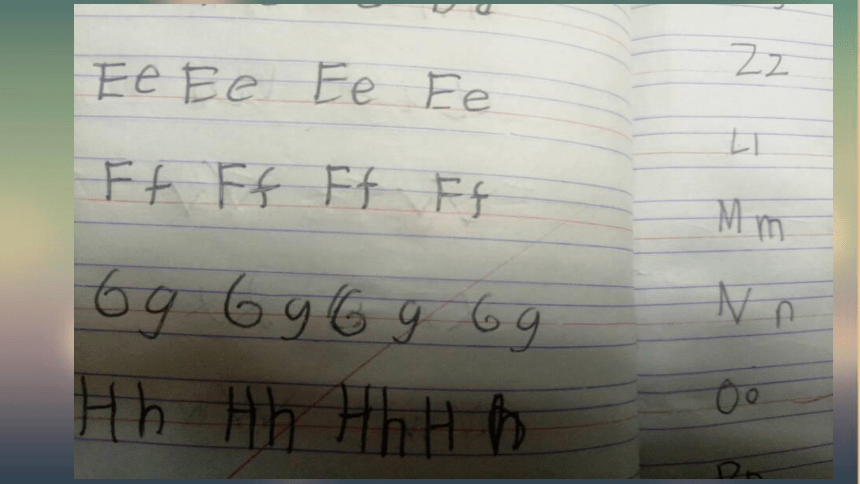 Ee Ee Ee Ee
Ff Ff Ff Ff
Gg Gg Gg Gg
Hh Hh Hh Hh
Zz
Ll
Mm
Nn
Oo